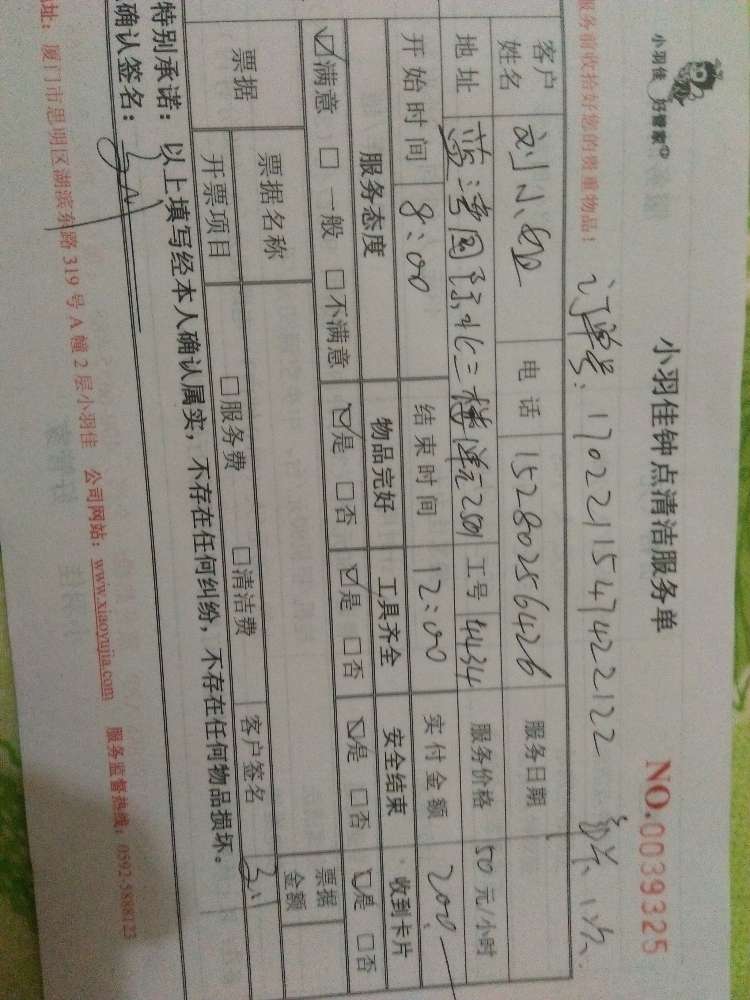 小羽佳 好管家
小羽佳钟点清洁服务单
NO.0039325
服务前收拾好您的贵重物品!
订单号: 1702211547422122
客户姓名 刘小姐 电话 15280256426 服务日期
地址 蓝湾国际北二梯 2501 工号 4434 服务价格 50元/小时
开始时间 8:00 结束时间 12:00 实付金额 200
服务态度 物品完好 工具齐全 安全结束 收到卡片
☑满意 □一般 □不满意 ☑是 □否 ☑是 □否 ☑是 □否 ☑是 □否
票据 票据名称 票据金额
开票项目 □服务费 □清洁费 客户签名
特别承诺:以上填写经本人确认属实,不存在任何纠纷,不存在任何物品损坏。
确认签名:
址:厦门市思明区湖滨东路319号A幢2层小羽佳 公司网站:www.xiaoyujia.com 服务监督热线:0592-5888123